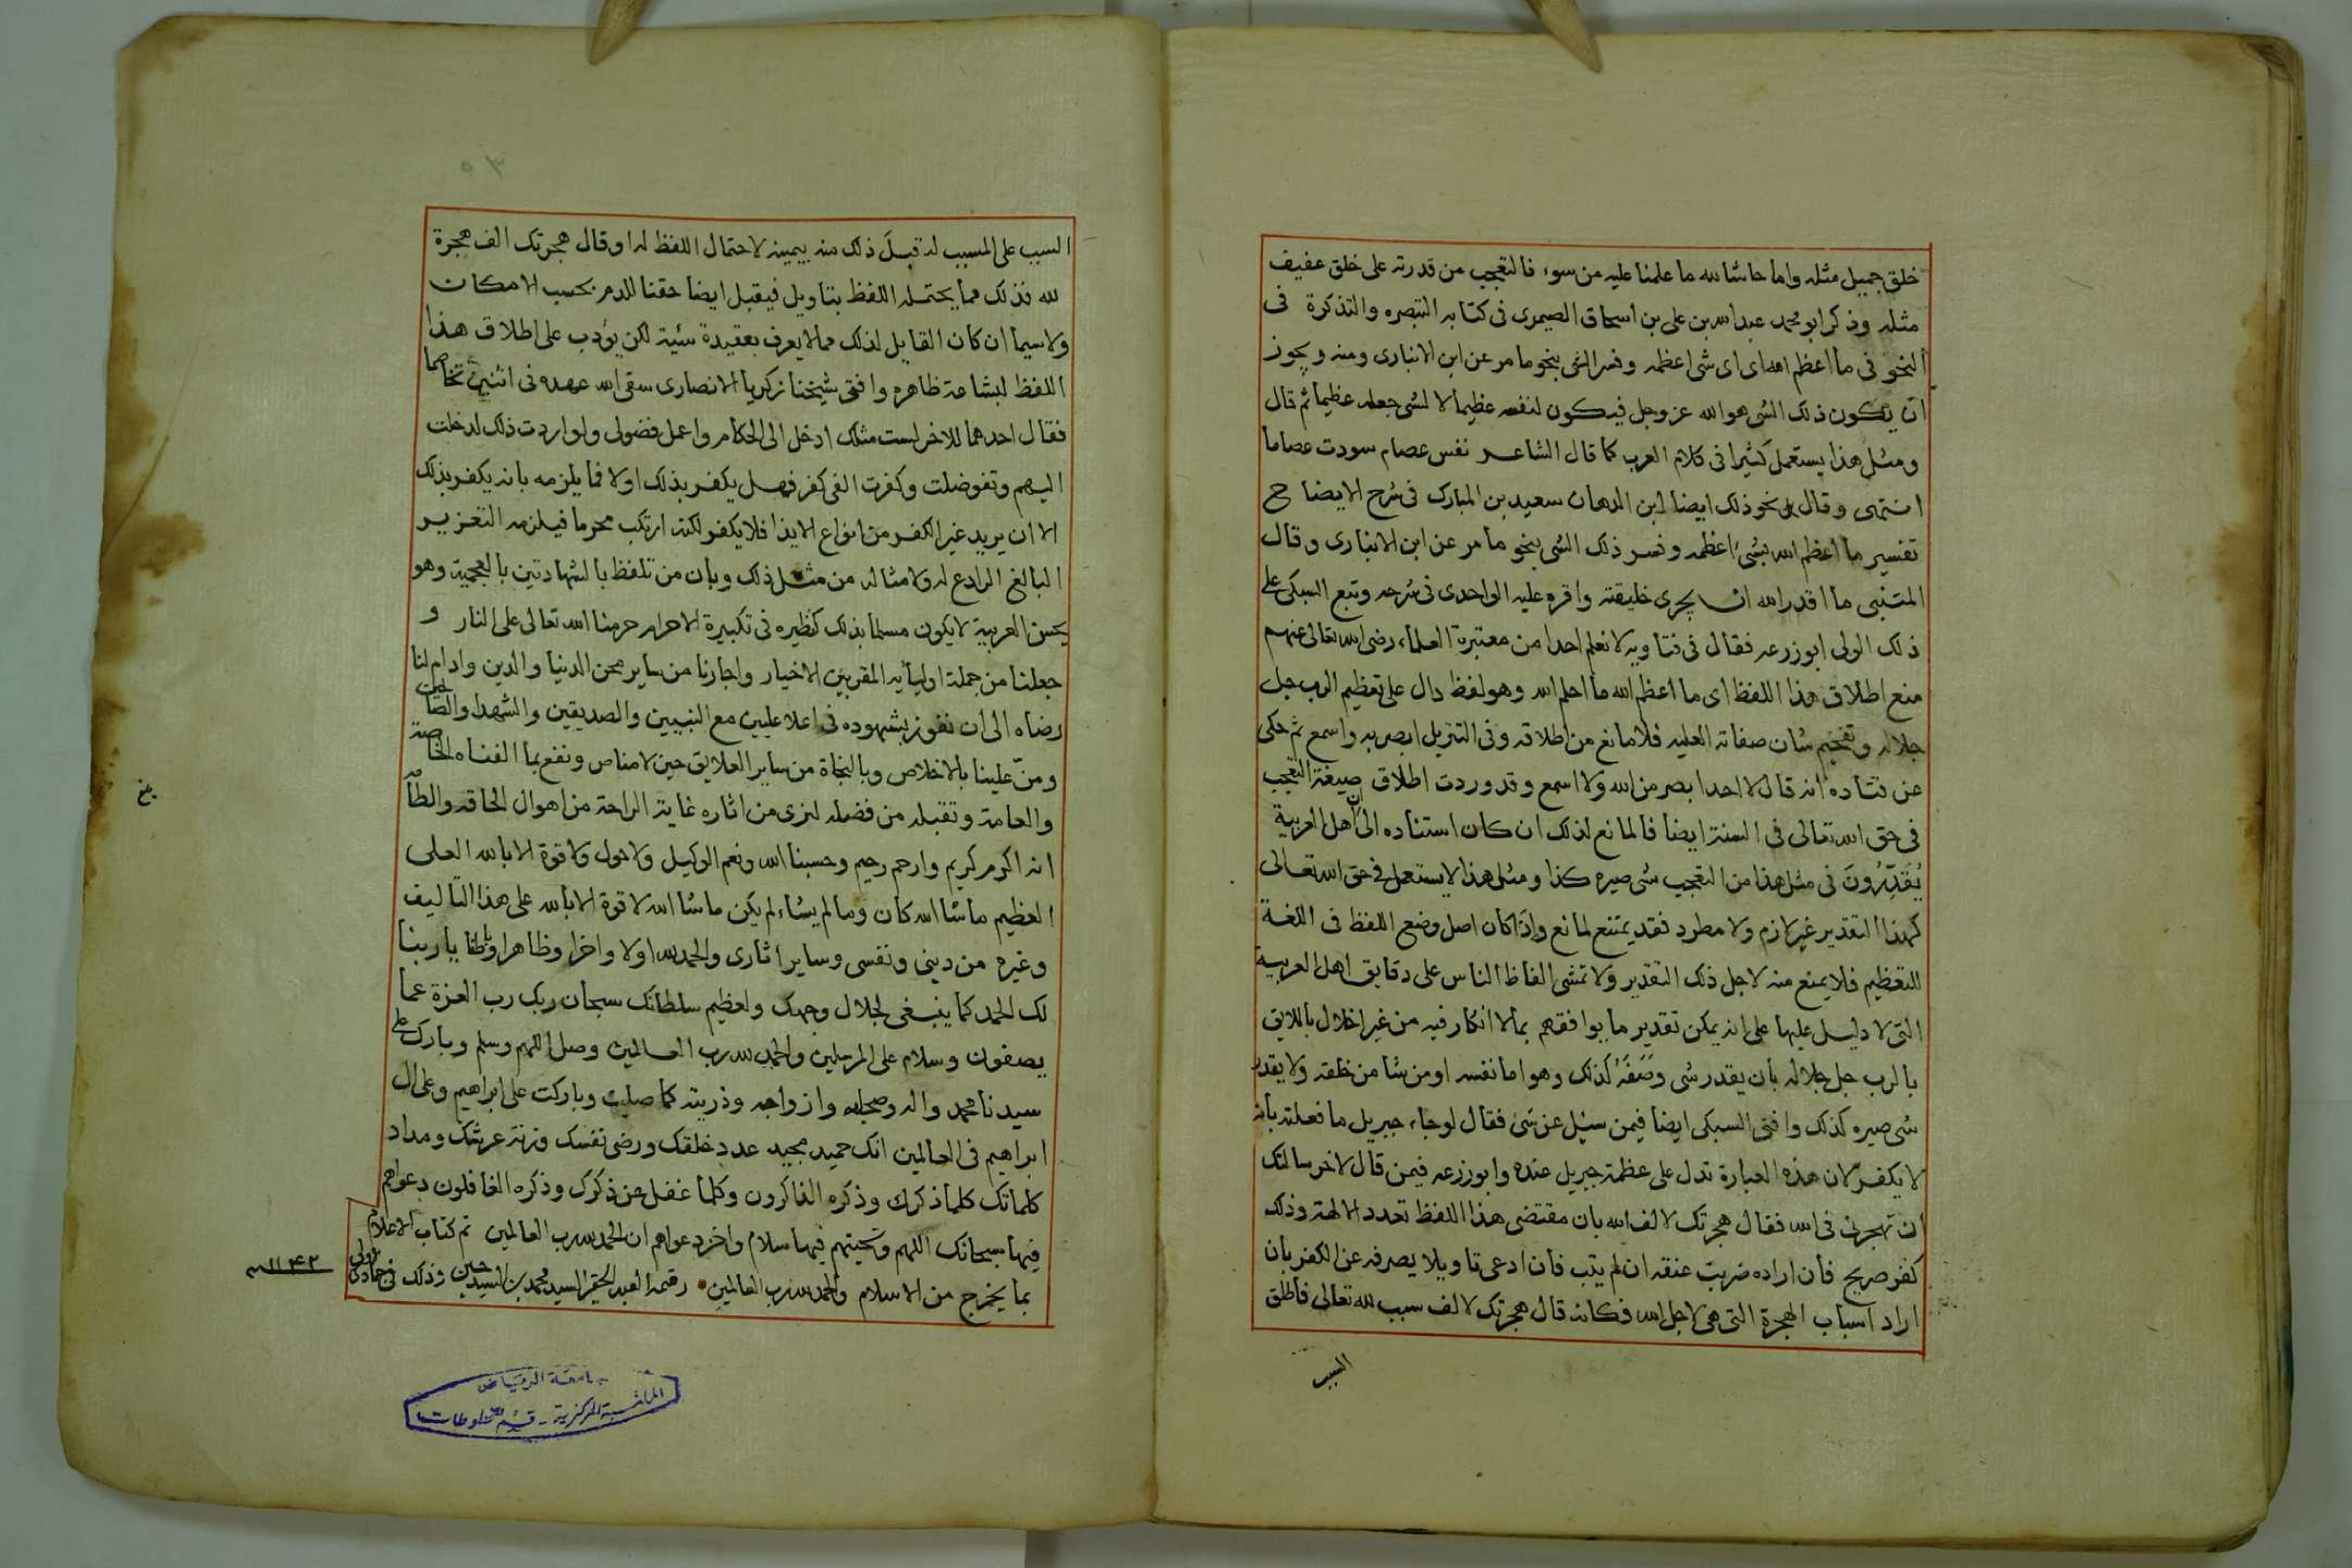 خلق جميل مثله واما حاشا لله ما علمنا عليه من سوء فالتعجب من قدرته على خلق عفيف
مثله وذكر ابو محمد عبد الله بن على بن اسحاق الصيمرى فى كتابه التبصره والتذكرة فى
النحو فى ما اعظم الله اى اى شى اعظمه وفسر الشى بنحو ما مر عن ابن الانبارى ومنه ويجوز
ان يكون ذلك الشى هو الله عز وجل فيكون لنفسه عظيما لا لشى جعله عظيما ثم قال
ومثل هذا يستعمل كثيرا فى كلام العرب كما قال الشاعر نفس عصام سودت عصاما
انتهى وقال نحو ذلك ايضا ابن الدهان سعيد بن المبارك فى شرح الايضاح
تفسير ما اعظم الله بشىء اعظمه وفسر ذلك الشى بنحو ما مر عن ابن الانبارى وقال
المتنبى ما اقدر الله ان يجرى خليقته واقره عليه الواحدى فى شرحه وتبع السبكى على
ذلك الولى ابو زرعه فقال فى فتاويه لا نعلم احدا من معتبرة العلماء رضى الله تعالى عنهم
منع اطلاق هذا اللفظ اى ما اعظم الله ما احلم الله وهو لفظ دال على تعظيم الرب جل
جلاله وتفخيم شان صفاته العليه فلا مانع من اطلاقه وفى التنزيل ابصر به واسمع ثم حكى
عن قتاده انه قال لا احد ابصر من الله ولا اسمع وقد وردت اطلاق صيغة التعجب
فى حق الله تعالى فى السنة ايضا فالمانع لذلك ان كان استناده الى ان اهل العربية
يُقَدِّرُونَ فى مثل هذا من التعجب شى صيره كذا ومثل هذا لا يستعمل فى حق الله تعالى
كهذا التقدير غير لازم ولا مطرد فقد يمتنع لمانع واذا كان اصل وضع اللفظ فى اللغة
للتعظيم فلا يمنع منه لاجل ذلك التقدير ولا تمشى الفاظ الناس على دقايق اهل العربيه
التى لا دليل عليها على انه يمكن تقدير ما يوافقهم بما لا انكار فيه من غير اخلال باللايق
بالرب جل جلاله بان يقدر شى وصفه كذلك وهو اما نفسه او من شا من خلقه ولا يقدر
شى صيره كذلك وافتى السبكى ايضا فيمن سئل عن شئ فقال لو جاء جبريل ما فعلته بانه
لا يكفر لان هذه العبارة تدل على عظمة جبريل عنده وابو زرعه فيمن قال لاخر سالتك
ان تهجرنى فى الله فقال هجرتك لالف الله بان مقتضى هذا اللفظ تعدد الالهة وذلك
كفر صريح فان اراده ضربت عنقه ان لم يتب فان ادعى تاويلا يصرفه عن الكفر بان
اراد اسباب الهجرة التى هى لاجل الله فكانه قال هجرتك لالف سبب لله تعالى فاطلق
السبب
السبب على المسبب له قبل ذلك منه بيمينه لاحتمال اللفظ له او قال هجرتك الف هجرة
لله فذلك مما يحتمله اللفظ بتاويل فيقبل ايضا حقنا للدم بحسب الامكان
ولا سيما ان كان القايل لذلك مما لا يعرف بعقيدة سئية لكن يؤدب على اطلاق هذا
اللفظ لبشاعة ظاهره وافتى شيخنا زكريا الانصارى سقى الله عهده فى اثنين تخاصما
فقال احدهما للاخر لست مثلك ادخل الى الحكام واعمل فضولى ولو اردت ذلك لدخلت
اليهم وتفوضلت وكفرت الفى كفر فهل يكفر بذلك اولا فما يلزمه بانه يكفر بذلك
الا ان يريد غير الكفر من انواع الايذا فلا يكفر لكنه ارتكب محرما فيلزمه التعزير
البالغ الرادع له ولامثاله من مثل ذلك وبان من تلفظ بالشهادتين بالعجمية وهو
يحسن العربية لا يكون مسلما بذلك كنظيره فى تكبيرة الاحرام حرمنا الله تعالى على النار و
جعلنا من جملة اوليائه المقربين الاخيار واجارنا من ساير محن الدنيا والدين وادام لنا
رضاه الى ان نفوز بشهوده فى اعلا عليين مع النبيين والصديقين والشهدا والصالحين
ومنّ علينا بالاخلاص وبالنجاة من ساير العلايق حين لا مناص ونفع بما الفناه الخاصة
والعامة وتقبله من فضله لنرى من اثاره غاية الراحة من اهوال الحاقه والطامة
انه اكرم كريم وارحم رحيم وحسبنا الله ونعم الوكيل ولا حول ولا قوة الا بالله العلى
العظيم ما شا الله كان وما لم يشاء لم يكن ما شا الله لا قوة الا بالله على هذا التاليف
وغيره من دينى ونفسى وساير اثارى والحمد لله اولا واخرا وظاهرا وباطنا يا ربنا
لك الحمد كما ينبغى لجلال وجهك ولعظيم سلطانك سبحان ربك رب العزة عما
يصفون وسلام على المرسلين والحمد لله رب العالمين وصل اللهم وسلم وبارك على
سيدنا محمد واله وصحبه وازواجه وذريته كما صليت وباركت على ابراهيم وعلى ال
ابراهيم فى العالمين انك حميد مجيد عدد خلقك ورضى نفسك وزنة عرشك ومداد
كلماتك كلما ذكرك وذكره الذاكرون وكلما غفل عن ذكرك وذكره الغافلون دعواهم
فيها سبحانك اللهم وتحيتهم فيها سلام واخر دعواهم ان الحمد لله رب العالمين تم كتاب الاعلام
بما يخرج من الاسلام والحمد لله رب العالمين رقمه العبد الحقير السيد محمد بن السيد حسين وذلك فى جمادى الاولى
١١٤٢
بلغ
٥٣
جامعة الرياض
المكتبة المركزية - قسم المخطوطات